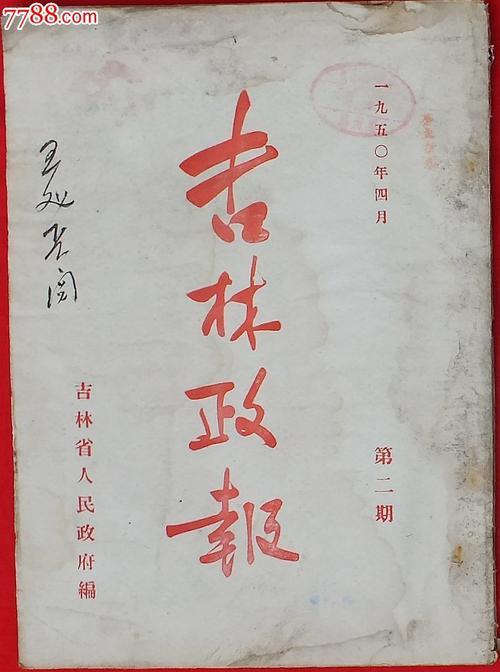 7788.com
中国收藏热线
一九五〇年四月
第二期
吉林政報
吉林省人民政府編